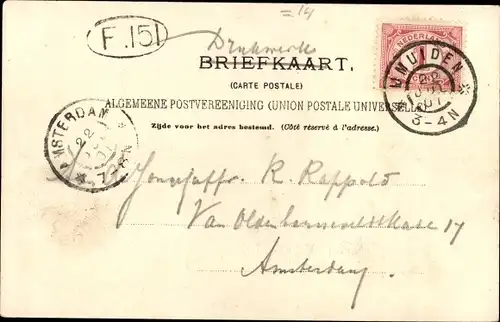 =14
F.151
Drukwerk
BRIEFKAART.
(CARTE POSTALE)
ALGEMEENE POSTVEREENIGING (UNION POSTALE UNIVERSELLE)
Zijde voor het adres bestemd. (Côté réservé à l'adresse.)
NEDERLAND
IJMUIDEN
22
01
3-4N
AMSTERDAM
22
7-8N
Jongejuffr. R. Rappold
Van Oldenbarneveltstraat 17
Amsterdam.